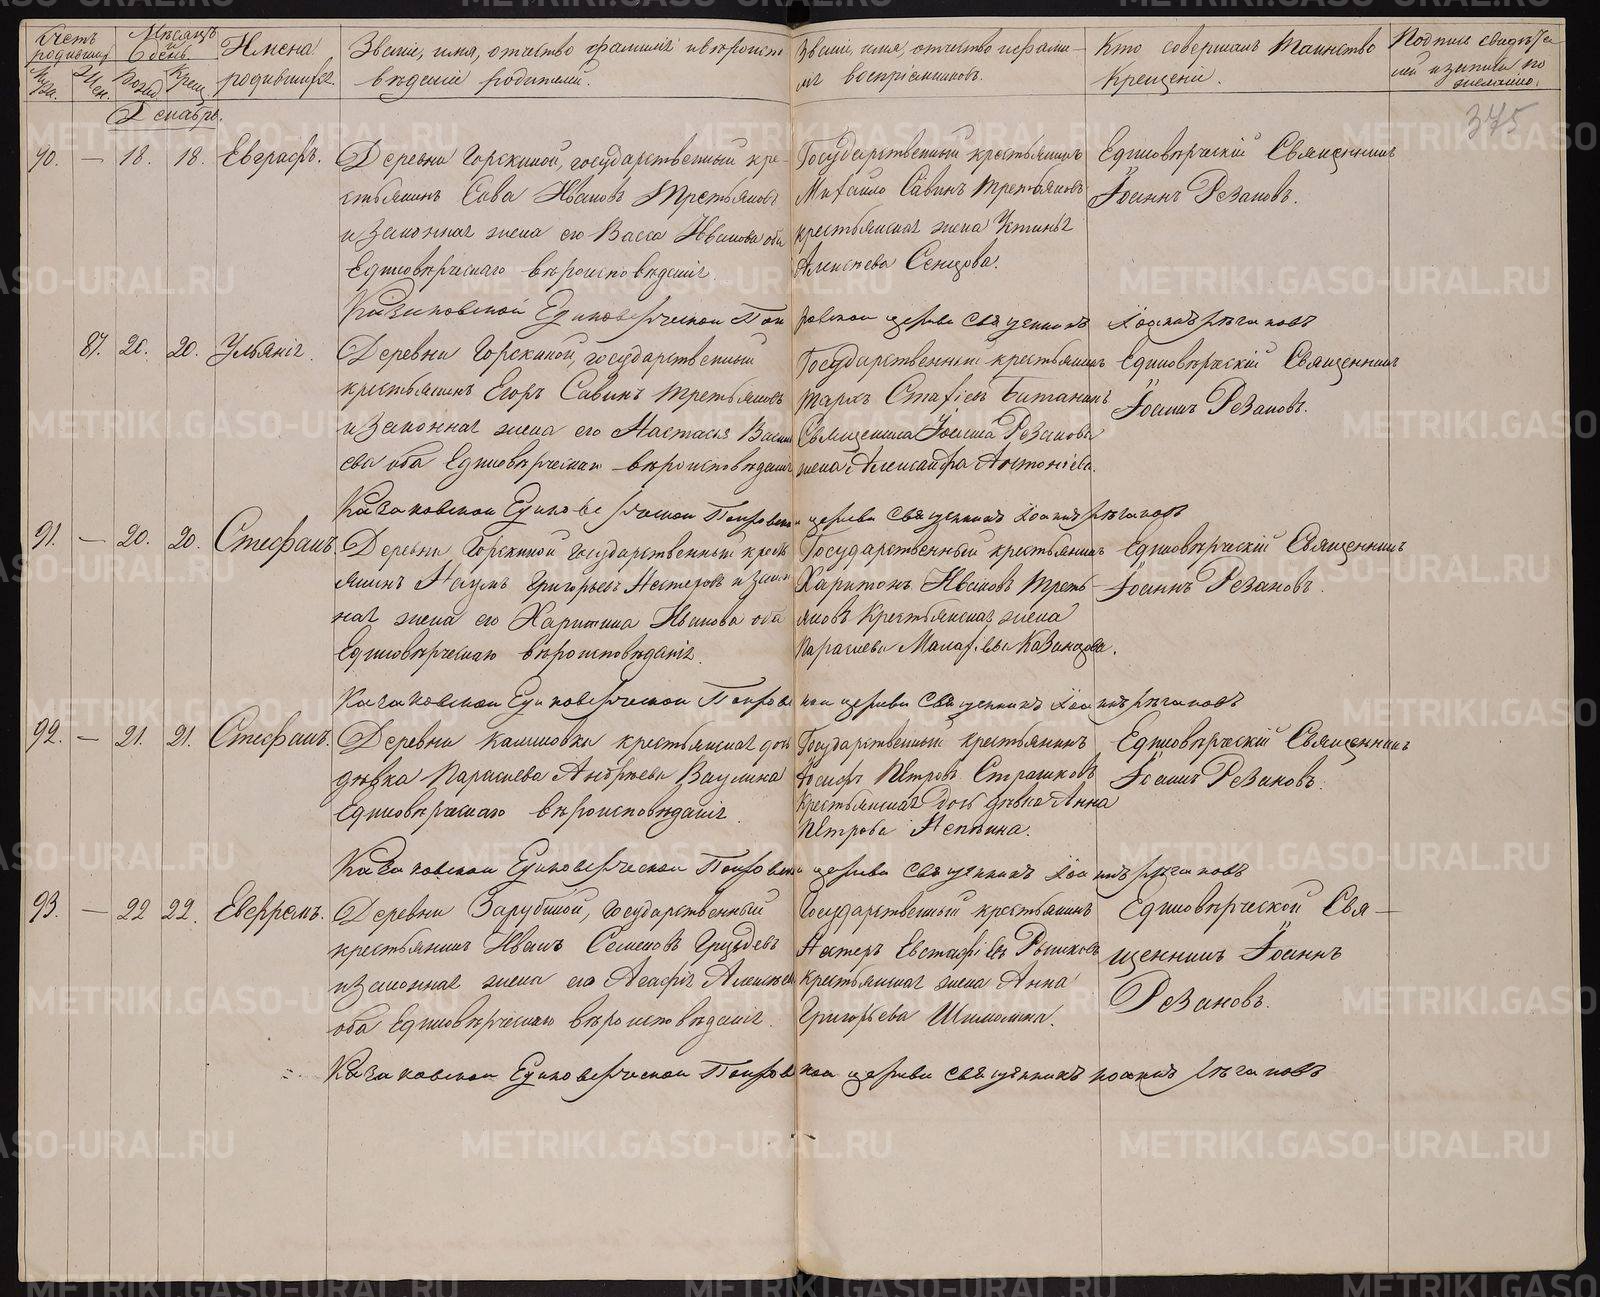 Счетъ родившихся
Мѣсяцъ и день
Имена родившихся.
Званіе, имя, отчество фамилія и вѣроиспо-
вѣданіе родителей.
Званіе, имя, отчество и фами-
лія воспріемниковъ.
Кто совершалъ Таинство
Крещенія.
Подпись свидѣте
лей и записи по
желанію.
Муж. Жен. Рожд. Крещ.
Декабрь.
375
90. — 18. 18. Евграфъ.
Деревни Горскиной, государственный кре-
стьянинъ Сава Ивановъ Третьяковъ
и законная жена его Васса Иванова оба
Единовѣрческаго вѣроисповѣданія.
Государственный крестьянинъ
Михайло Савинъ Третьяковъ
крестьянская жена Устинья
Алексѣева Сенцова.
Единовѣрческій Священникъ
Іоаннъ Рѣзановъ.
Единоверческой Покровской церкви священникъ Іоаннъ Рѣзановъ
87. 20. 20. Ульянія.
Деревни Горскиной, государственный
крестьянинъ Егоръ Савинъ Третьяковъ
и законная жена его Настасья Василь
ева оба Единовѣрческаго вѣроисповѣданія
Государственный крестьянинъ
Священника Іоанна Рѣзанова
жена Александра Антоніева.
Единовѣрческій Священникъ
Іоаннъ Рѣзановъ.
Единоверческой Покровской церкви священникъ Іоаннъ Рѣзановъ
91. — 20. 20. Стефанъ.
Деревни Горскиной государственный кресть
янинъ Наумъ Григорьевъ Нестеровъ и закон
ная жена его Харитина Иванова оба
Единовѣрческаго вѣроисповѣданія.
Государственный крестьянинъ
Харитонъ Ивановъ Треть-
яковъ крестьянская жена
Параскева Макарьева Казанцова.
Единовѣрческій Священникъ
Іоаннъ Рѣзановъ.
Единоверческой Покровской церкви священникъ Іоаннъ Рѣзановъ
92. — 21. 21. Стефанъ.
Деревни крестьянская дочь
дѣвка Параскева Андреева Ваулина
Единовѣрческаго вѣроисповѣданія.
Государственный крестьянинъ
Іосифъ Петровъ Страшковъ
Крестьянская дочь дѣвка Анна
Петрова
Единовѣрческій Священникъ
Іоаннъ Рѣзановъ.
Единоверческой Покровской церкви священникъ Іоаннъ Рѣзановъ
93. — 22 22.
Деревни Зарубиной, государственный
крестьянинъ Иванъ Семеновъ Груздевъ
и законная жена его Агафія Алексѣева
оба Единовѣрческаго вѣроисповѣданія.
Государственный крестьянинъ
Нестеръ Евстафіевъ
крестьянская жена Анна
Григорьева
Единовѣрческой Свя-
щенникъ Іоаннъ
Рѣзановъ.
Единоверческой Покровской церкви священникъ Іоаннъ Рѣзановъ
METRIKI.GASO-URAL.RU